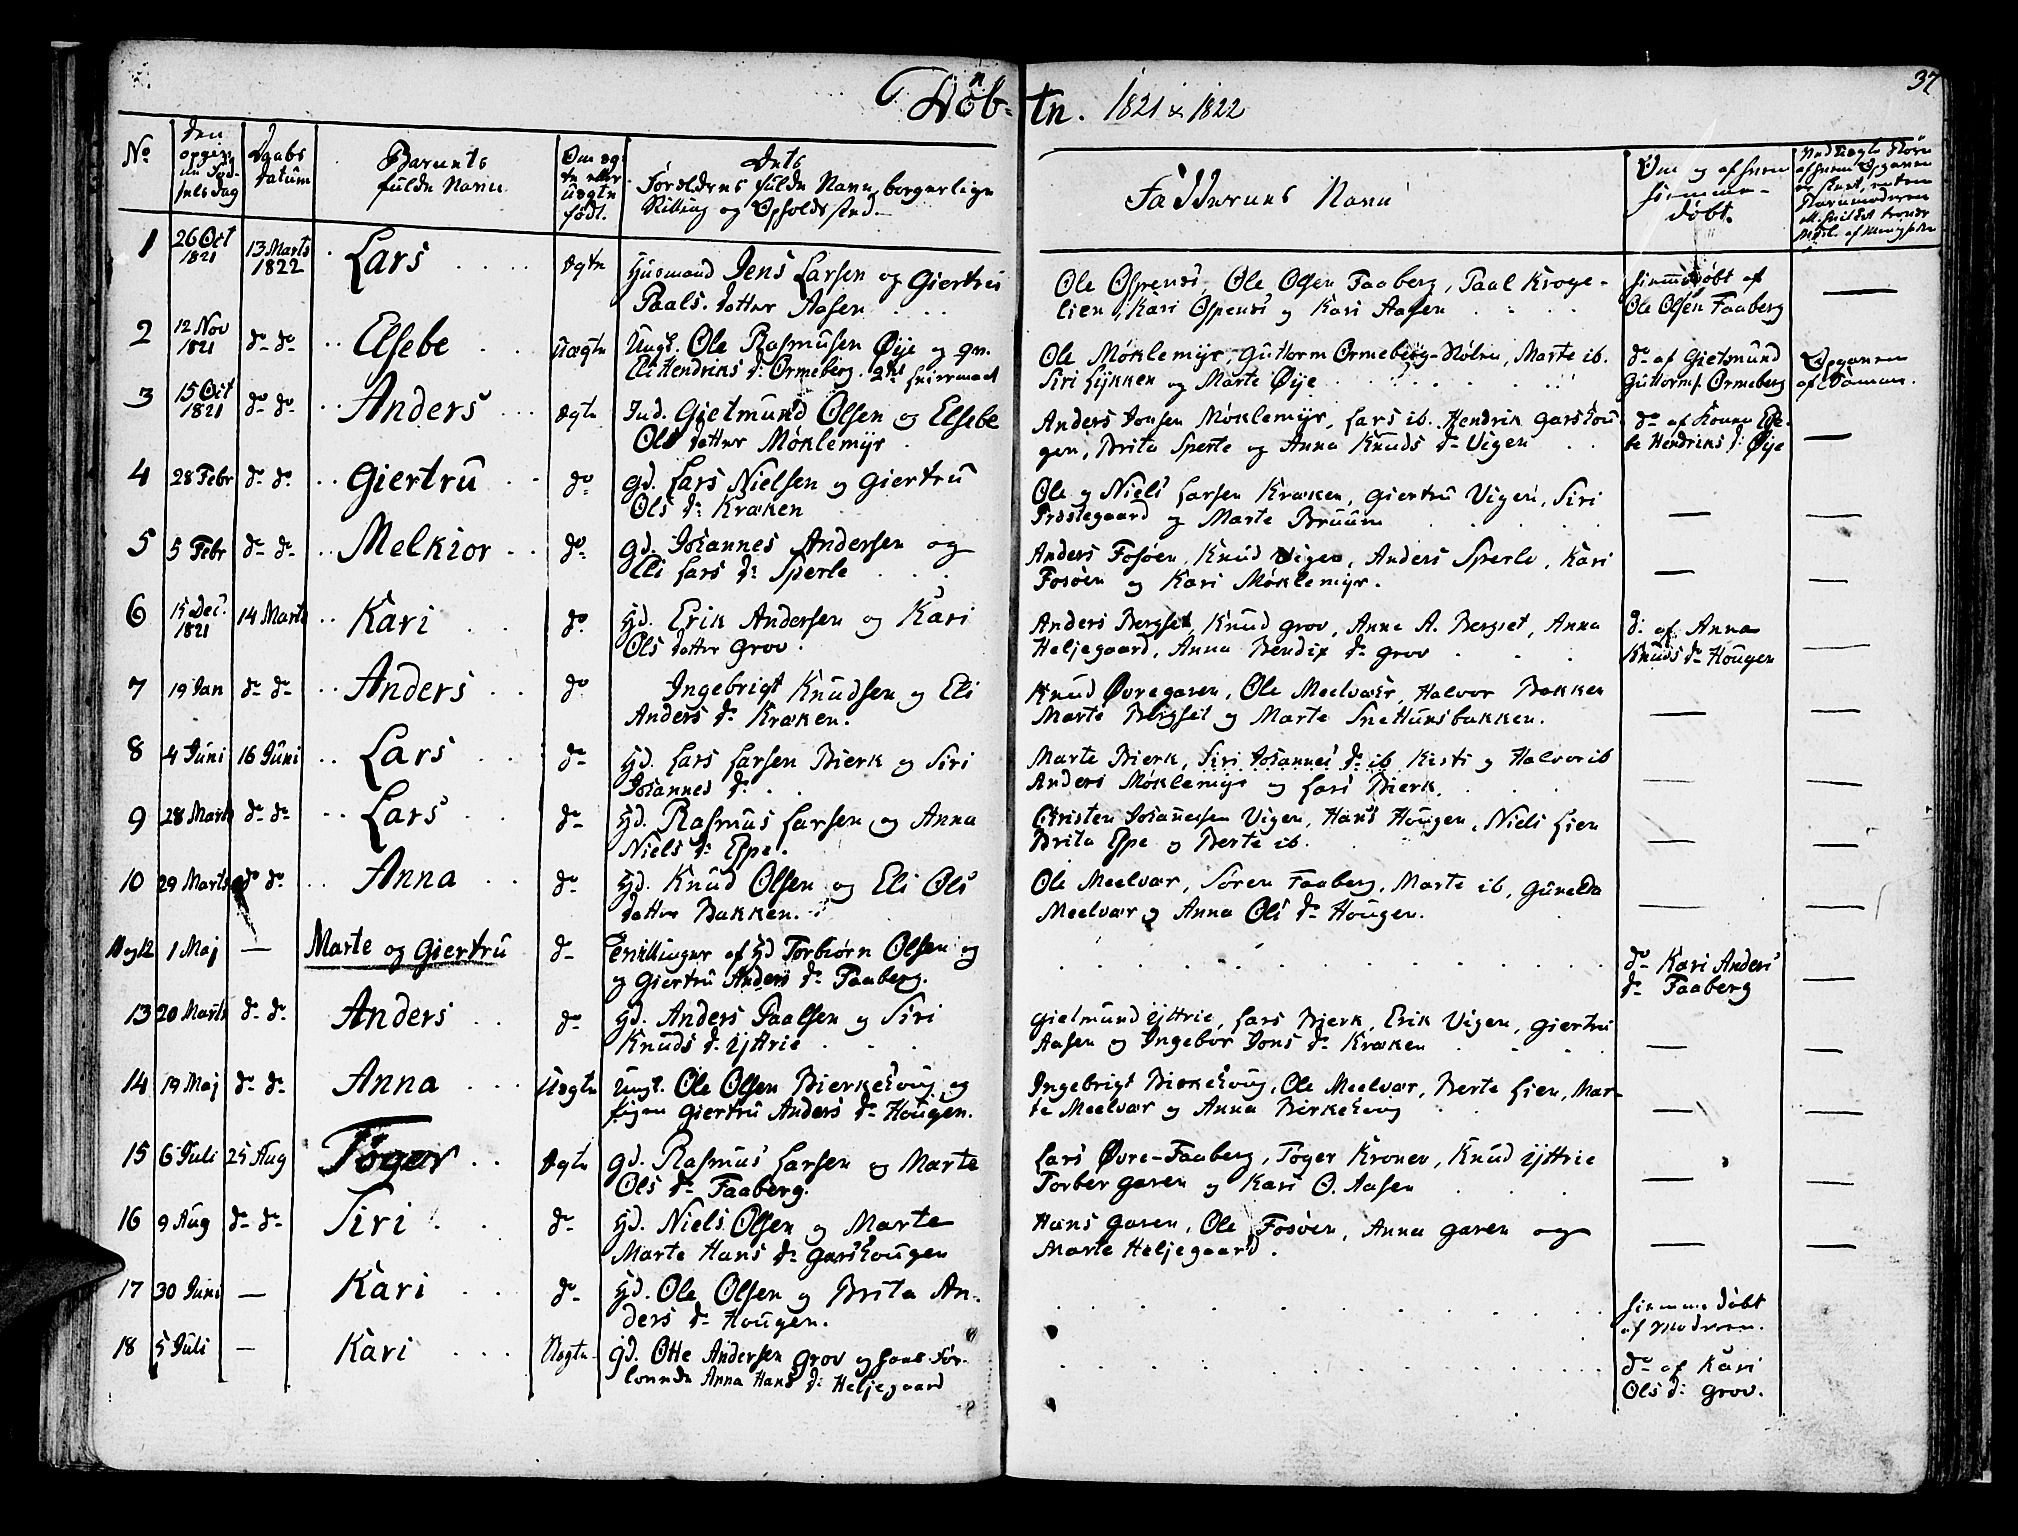 37
Døb- tn. 1821 & 1822
No
den opgivne Fødselsdag
Daabs datum
Barnets fulde Navn
Om ægte eller uægte født.
Dets Forældrenes fulde Navn, borgerlige Stilling og Opholdssted
Faddernes Navne
Om og af hvem hjemmedøbt.
1 26 Oct 1821 13 Marts 1822 Lars ægte Huusmand Jens Larsen og Giertru
Paals datter Aasen
Ole Espensi, Ole Olsen Faaberg, Paal Kroge-
lien, Kari Espensi og Kari Aasen
hjemmedøbt af
Ole Olsen Faaberg
2 12 Nov 1821 do do Elsebe uægte Ungk. Ole Rasmusen Øije og qv.
Eli Hendriks d: Ormeberg. 2det Leiermaal
Ole Møklemyr, Guttorm Ormeberg-Holen, Marte ib.
Siri Lykken og Marte Øije
do af Gietmund
Guttormsf Ormeberg
Opgaven
af Damen.
3 15 Oct 1821 do do Anders ægte Ind. Gietmund Olsen og Elsebe
Ols datter Møklemyr
Anders Jonsen Møklemyr, Lars ib. Hendrik Garshou-
gen, Brita Sperle og Anna Knuds do Vigen
do af Konen Else-
be Hendriks d: Øije
4 28 Febr do do Giertru do gd. Lars Nielsen og Giertru
Ols d: Kræken
Ole og Niels Larsen Kræken, Giertru Vigen, Siri
Præstegaard og Marte Bruum
5 5 Febr do do Melkior do gd. Johannes Andersen og
Eli Lars d: Sperle
Anders Fosøen, Knud Vigen, Anders Sperle, Kari
Fosøen og Kari Møklemyr.
6 15 Dec. 1821 14 Marts Kari do Hd. Erik Andersen og Kari
Ols datter Grov.
Anders Bergset, Knud Grov, Anne A. Bergset, Anna
Heljegaard, Anna Bendix do Grov
d: af Anna
Knuds do Hougen
7 19 Jan do do Anders do Ingebrigt Knudsen og Eli
Anders do Kræken.
Knud Øvregaren, Ole Meelvær, Halvor Bakken
Marte Bergset og Marte Snetunsbakken.
8 4 Juni 16 Juni Lars do Hd. Lars Larsen Bierk og Siri
Johannes do
Marte Bierk, Siri Johannes do ib Kisti og Halvor ib
Anders Møklemyr og Lars Bierk.
9 28 Marts do do Lars do Hd. Rasmus Larsen og Anna
Niels d: Espe.
Christen Johannesen Vigen, Hans Hougen, Niels Lien
Brita Espe og Berte ib.
10 29 Marts do do Anna do Hd. Knud Olsen og Eli Ols
datter Bakken.
Ole Meelvær, Søren Faaberg, Marte ib, Gunelda
Meelvær og Anna Ols do Hougen.
11 og 12 1 Maj — Marte og Giertru do Tvillinger af Hd Torbiørn Olsen og
og Giertru Anders do Faaberg.
do Kari Anders
do Faaberg
13 20 Marts do do Anders do Hd. Anders Paalsen og Siri
Knuds d. Yttrie
Gietmund Yttrie, Lars Bierk, Erik Vigen, Giertru
Aasen og Ingebor Jons do Kræken
14 19 Maj do do Anna Uægte Ungk. Ole Olsen Bierkehoug og
Pigen Giertru Anders do Hougen.
Ingebrigt Birkehoug, Ole Meelvær, Berte Lien, Mar-
te Meelvær og Anna Birkehoug
15 6 Juli 25 Aug Tøger ægte gd. Rasmus Larsen og Marte
Ols do Faaberg.
Lars Øvre-Faaberg, Tøger Kronen, Knud Yttrie
Torber Garen og Kari O. Aasen
16 9 Aug do do Siri do Hd. Niels Olsen og Marte
Marte Hans do Garshougen
Hans Garen, Ole Fosøen, Anna Garen og
Marte Heljegaard.
17 30 Juni — Kari do Hd. Ole Olsen og Brita An-
ders do Hougen.
hjemmedøbt
af Moderen.
18 5 Juli — Kari Uægte gd. Otte Andersen Grov og hans For-
lovede Anna Hans d: Heljegaard
do af Kari
Ols d: Grov.